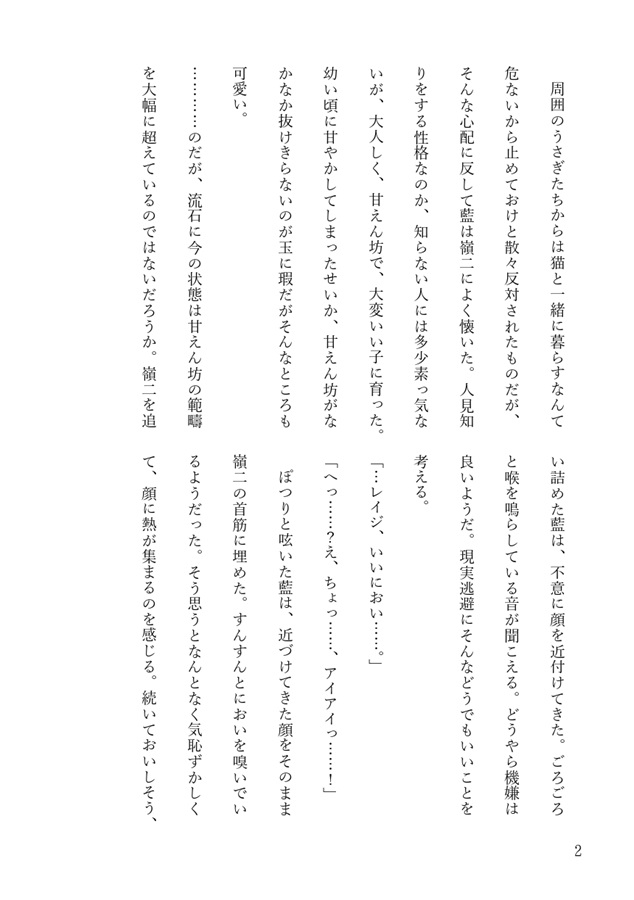 周囲のうさぎたちからは猫と一緒に暮らすなんて
危ないから止めておけと散々反対されたものだが、
そんな心配に反して藍は嶺二によく懐いた。人見知
りをする性格なのか、知らない人には多少素っ気な
いが、大人しく、甘えん坊で、大変いい子に育った。
幼い頃に甘やかしてしまったせいか、甘えん坊がな
かなか抜けきらないのが玉に瑕だがそんなところも
可愛い。
…………のだが、流石に今の状態は甘えん坊の範疇
を大幅に超えているのではないだろうか。嶺二を追
い詰めた藍は、不意に顔を近付けてきた。ごろごろ
と喉を鳴らしている音が聞こえる。どうやら機嫌は
良いようだ。現実逃避にそんなどうでもいいことを
考える。
「…レイジ、いいにおい……。」
「へっ……？え、ちょっ……、アイアイっ……！」
　ぽつりと呟いた藍は、近づけてきた顔をそのまま
嶺二の首筋に埋めた。すんすんとにおいを嗅いでい
るようだった。そう思うとなんとなく気恥ずかしく
て、顔に熱が集まるのを感じる。続いておいしそう、
2